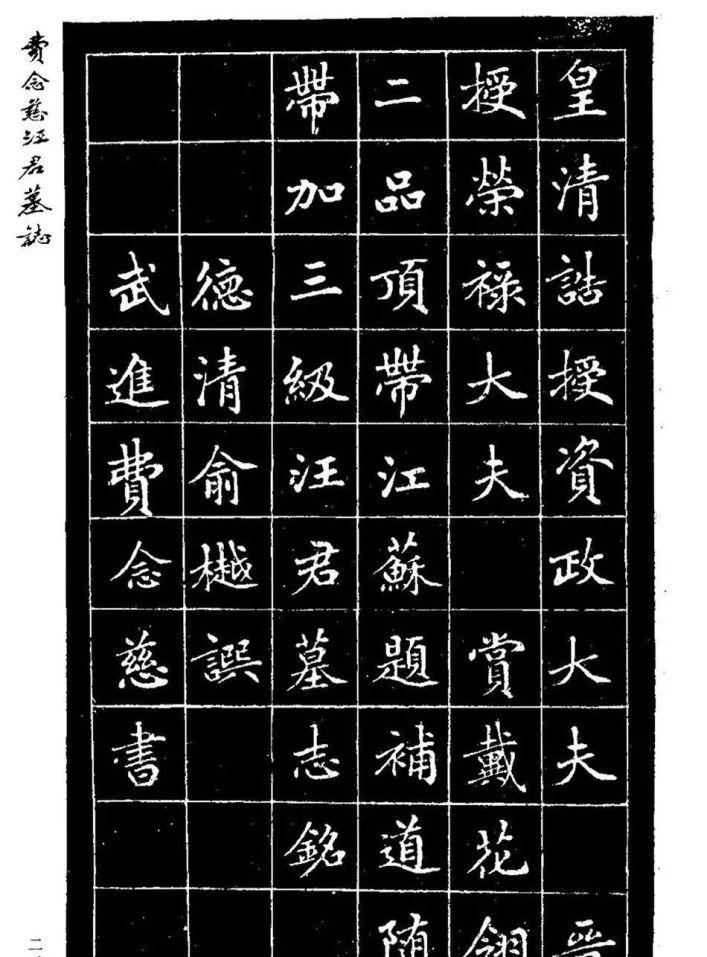 皇清誥授資政大夫 晉
授榮祿大夫 賞戴花翎
二品頂帶江蘇題補道随
帶加三級汪君墓志銘
德清俞樾譔
武進費念慈書
費念慈汪君墓誌
二